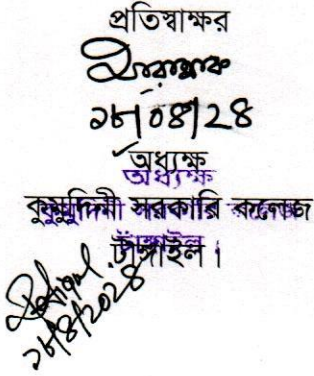 প্রতিস্বাক্ষর
২৮/০৪/২৪
অধ্যক্ষ
অধ্যক্ষ
কুমুদিনী সরকারি কলেজ
টাঙ্গাইল।
২৮/৪/২০২৪